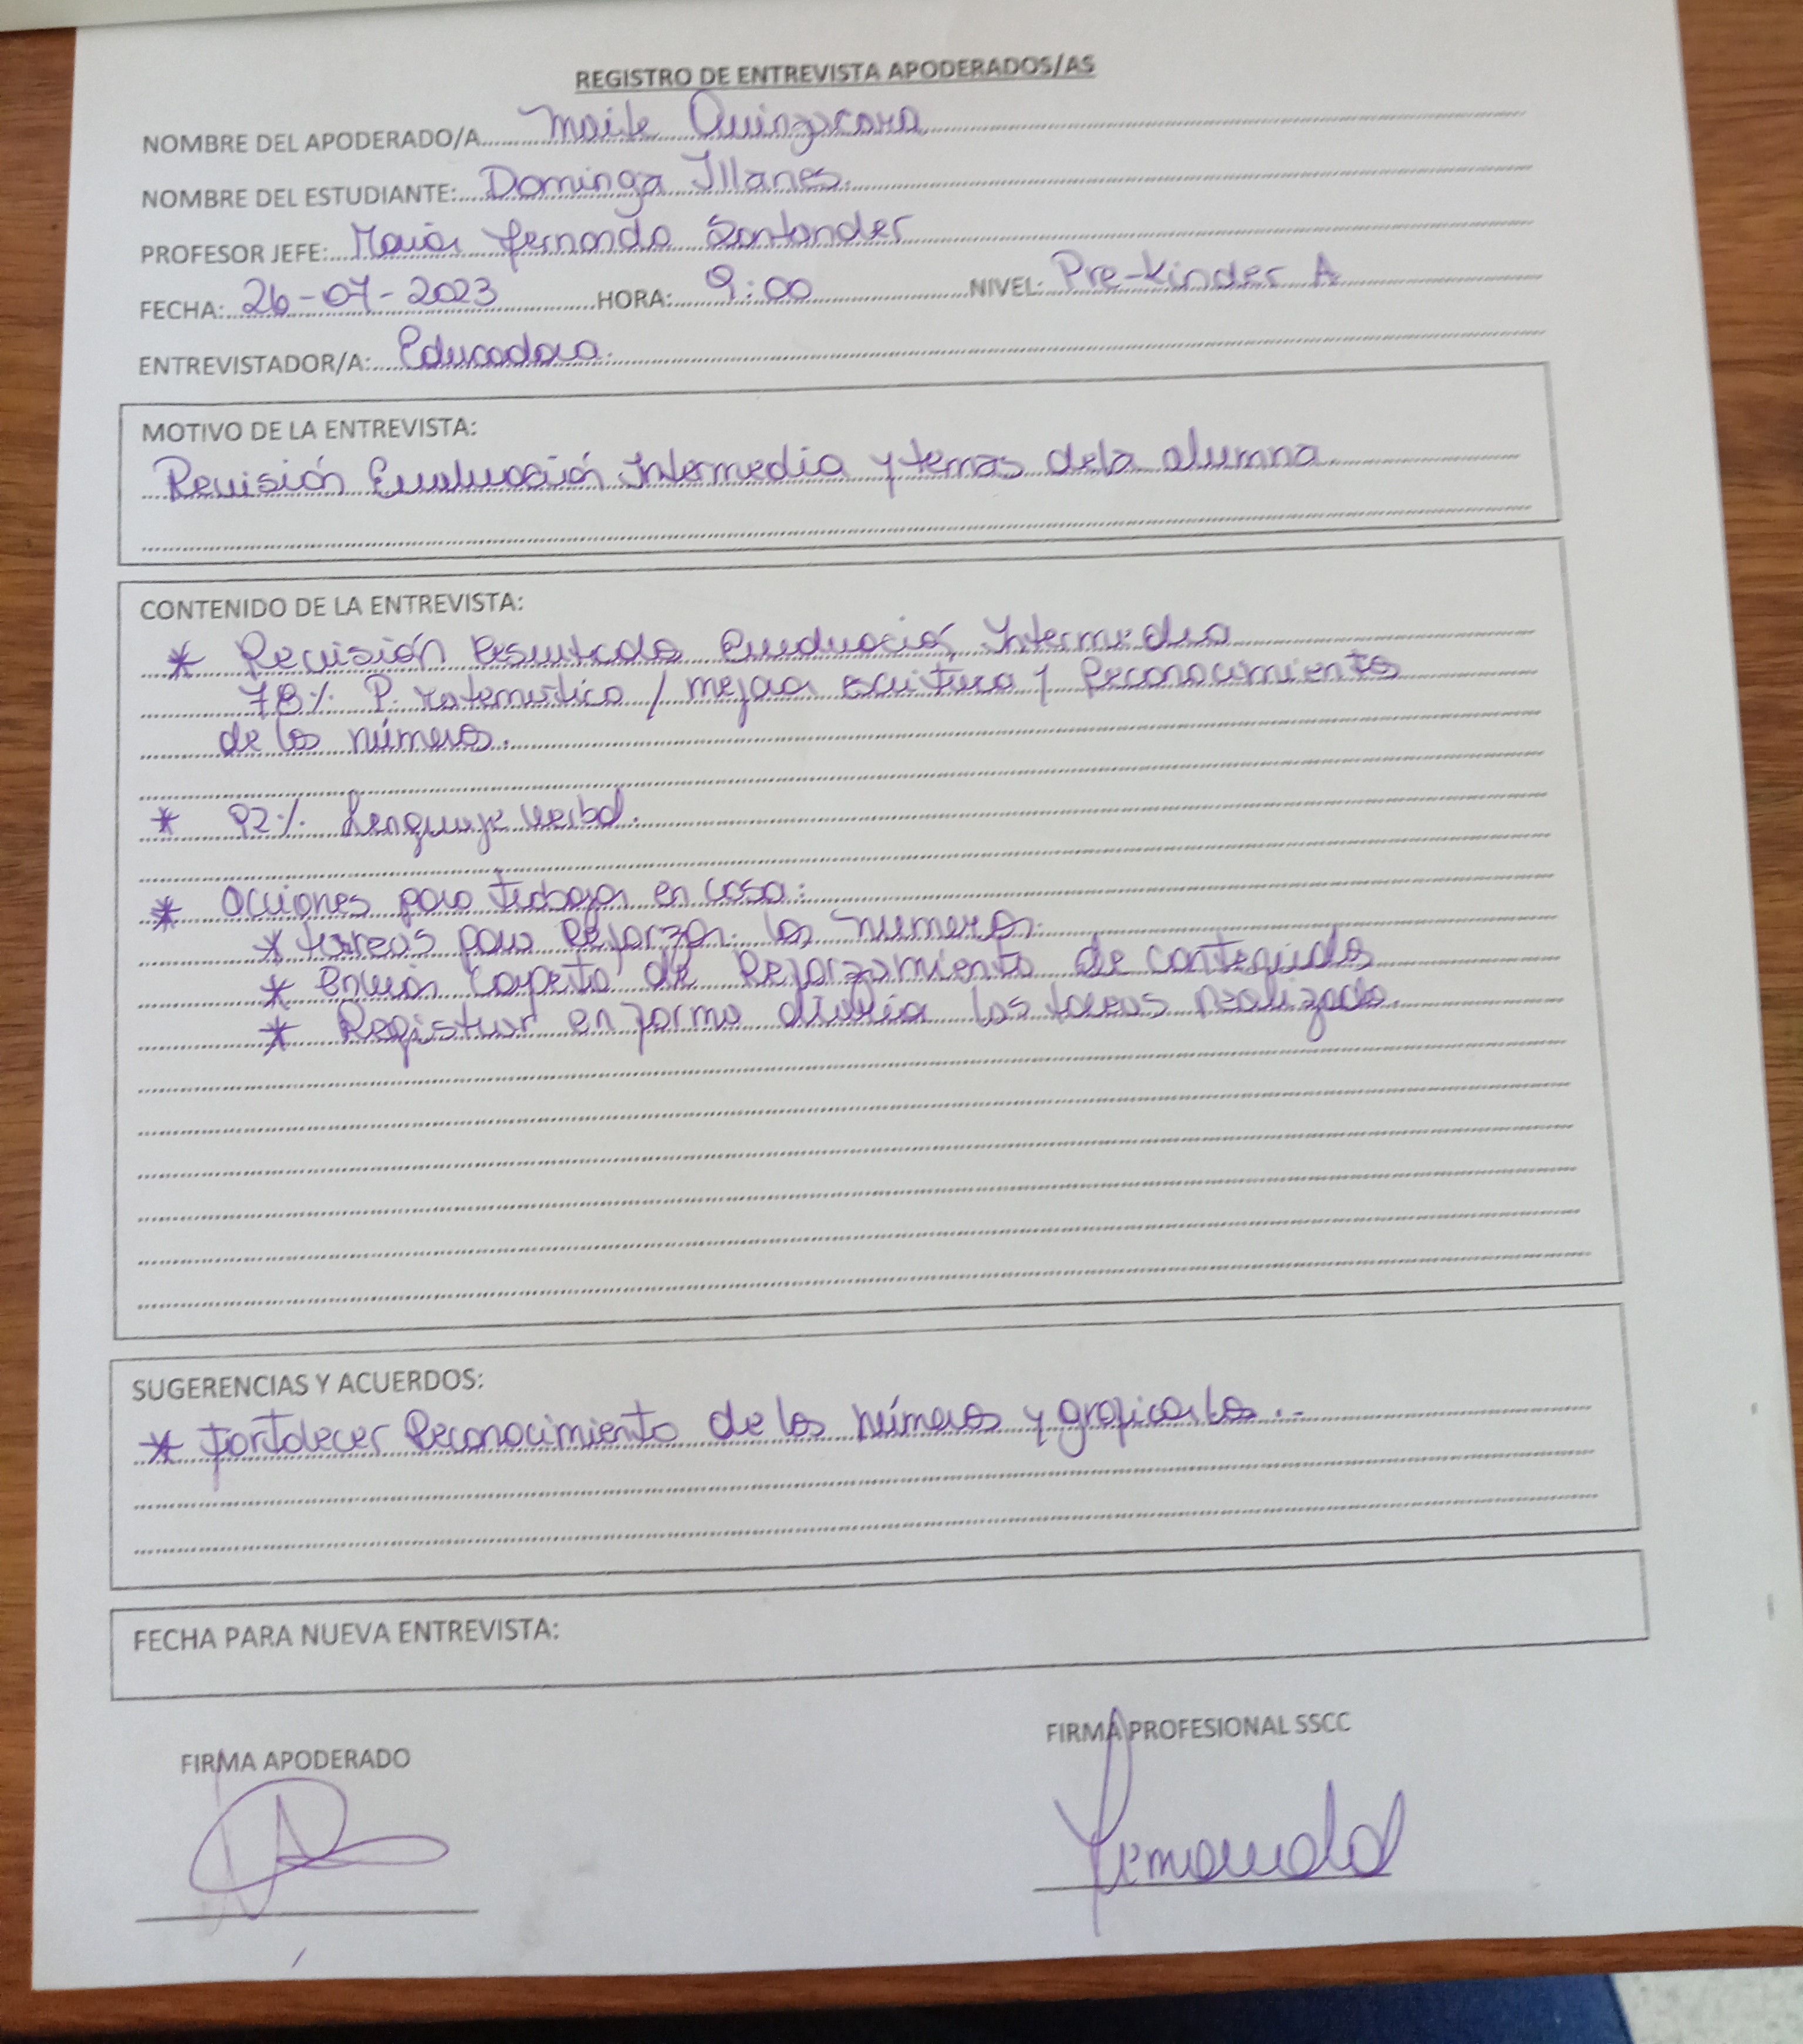 REGISTRO DE ENTREVISTA APODERADOS/AS
NOMBRE DEL APODERADO/A Maite Quinzacara
NOMBRE DEL ESTUDIANTE: Dominga Illanes.
PROFESOR JEFE: María Fernanda Santander
FECHA: 26-07-2023 HORA: 9:00 NIVEL: Pre-Kinder A
ENTREVISTADOR/A: Educadora.
MOTIVO DE LA ENTREVISTA:
Revisión Evaluación Intermedia y temas de la alumna
CONTENIDO DE LA ENTREVISTA:
* Revisión Resultados Evaluación Intermedia
78% P. Matemático / mejorar escritura y Reconocimiento
de los números.
* 92% Lenguaje verbal.
* Acciones para trabajar en casa:
* tareas para Reforzar los números.
* Enviar Carpeta de Reforzamiento de contenidos
* Registrar en forma diaria las tareas realizada.
SUGERENCIAS Y ACUERDOS:
* Fortalecer Reconocimiento de los números y graficarlos..
FECHA PARA NUEVA ENTREVISTA:
FIRMA APODERADO FIRMA PROFESIONAL SSCC
Fernanda